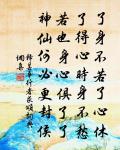 了身不若了心休
了得心時身不愁
若也身心俱了了
神仙何必更封侯